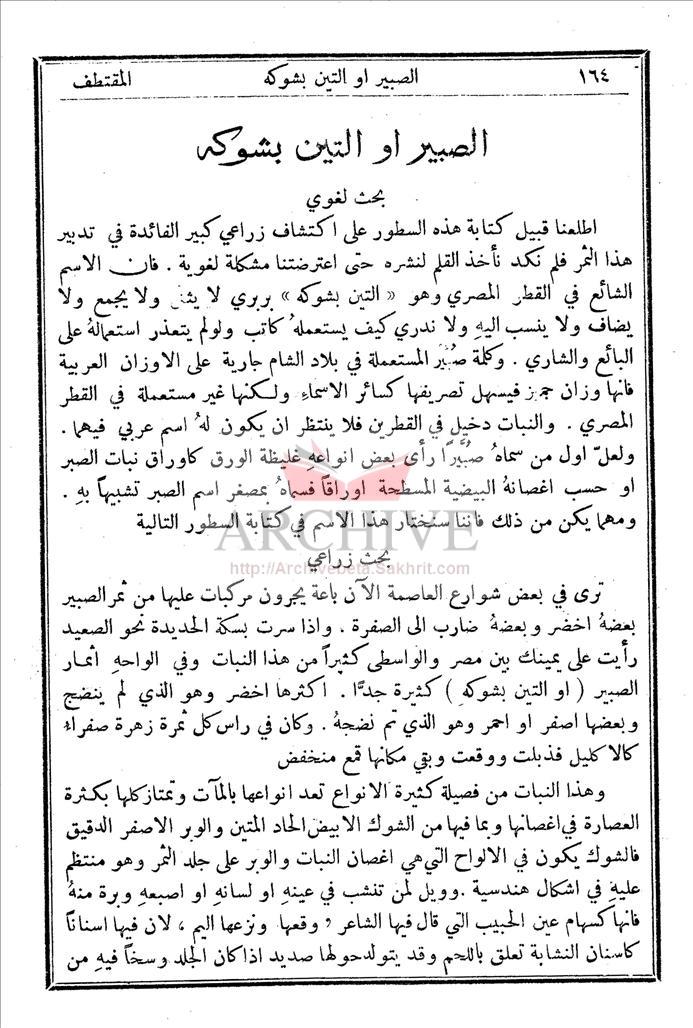 ١٦٤ الصبير او التين بشوكه المقتطف
الصبير او التين بشوكه
بحث لغوي
اطلعنا قبيل كتابة هذه السطور على اكتشاف زراعي كبير الفائدة في تدبير
هذا الثمر فلم نكد نأخذ القلم لنشره حتى اعترضتنا مشكلة لغوية . فان الاسم
الشائع في القطر المصري وهو « التين بشوكه » بربري لا يثنى ولا يجمع ولا
يضاف ولا ينسب اليهِ ولا ندري كيف يستعملهُ كاتب ولولم يتعذر استعمالهُ على
البائع والشاري . وكلمة صُبَّير المستعملة في بلاد الشام جارية على الاوزان العربية
فانها وزان جميز فيسهل تصريفها كسائر الاسماء ولكنها غير مستعملة في القطر
المصري . والنبات دخيل في القطرين فلا ينتظر ان يكون لهُ اسم عربي فيهما .
ولعلّ اول من سماهُ صُبَّيرًا رأى بعض انواعهِ غليظة الورق كاوراق نبات الصبر
او حسب اغصانهُ البيضية المسطحة اوراقاً فسماهُ بمصغر اسم الصبر تشبيهاً بهِ .
ومهما يكن من ذلك فاننا سنختار هذا الاسم في كتابة السطور التالية
ARCHIVE
بحث زراعي
http://Archivebeta.Sakhrit.com
ترى في بعض شوارع العاصمة الآن باعة يجرون مركبات عليها من ثمر الصبير
بعضهُ اخضر وبعضهُ ضارب الى الصفرة . واذا سرت بسكة الحديدة نحو الصعيد
رأيت على يمينك بين مصر والواسطى كثيراً من هذا النبات وفي الواحهِ اثمار
الصبير ( او التين بشوكه ) كثيرة جدًّا . اكثرها اخضر وهو الذي لم ينضج
وبعضها اصفر او احمر وهو الذي تم نضجهُ . وكان في راس كل ثمرة زهرة صفراء
كالاكليل فذبلت ووقعت وبقي مكانها قمع منخفض
وهذا النبات من فصيلة كثيرة الانواع تعد انواعها بالمآت وتمتاز كلها بكثرة
العصارة في اغصانها وبما فيها من الشوك الابيض الحاد المتين والوبر الاصفر الدقيق
فالشوك يكون في الالواح التي هي اغصان النبات والوبر على جلد الثمر وهو منتظم
عليهِ في اشكال هندسية . وويل لمن تنشب في عينهِ او لسانهِ او اصبعهِ وبرة منهُ
فانها كسهام عين الحبيب التي قال فيها الشاعر , وقعها ونزعها اليم ، لان فيها اسناناً
كاسنان النشابة تعلق باللحم وقد يتولد حولها صديد اذا كان الجلد وسخاً فيهِ من